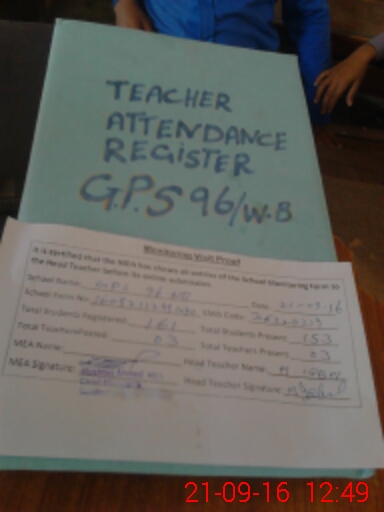 TEACHER
ATTENDANCE
REGISTER
G.P.S 96/W.B
Monitoring Visit Proof
It is certified that the MEA has shown all entries of the School Monitoring Form to
the Head Teacher before its online submission.
School Name: GPS 96 WB Date: 21-09-16
School Form No: EMIS Code:
Total Students Registered: 161 Total Students Present: 153
Total Teachers Posted: 03 Total Teachers Present: 03
MEA Name: Head Teacher Name:
MEA Signature: Head Teacher Signature:
21-09-16 12:49